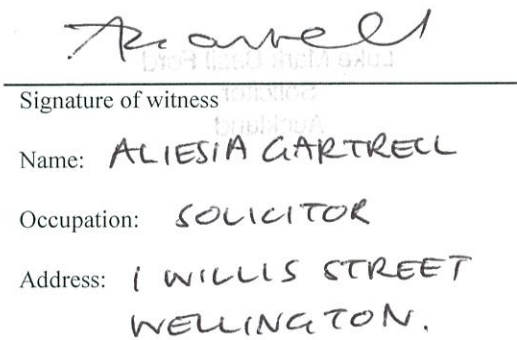 Signature of witness
Name: ALIESIA GARTRELL
Occupation: SOLICITOR
Address: 1 WILLIS STREET
WELLINGTON.